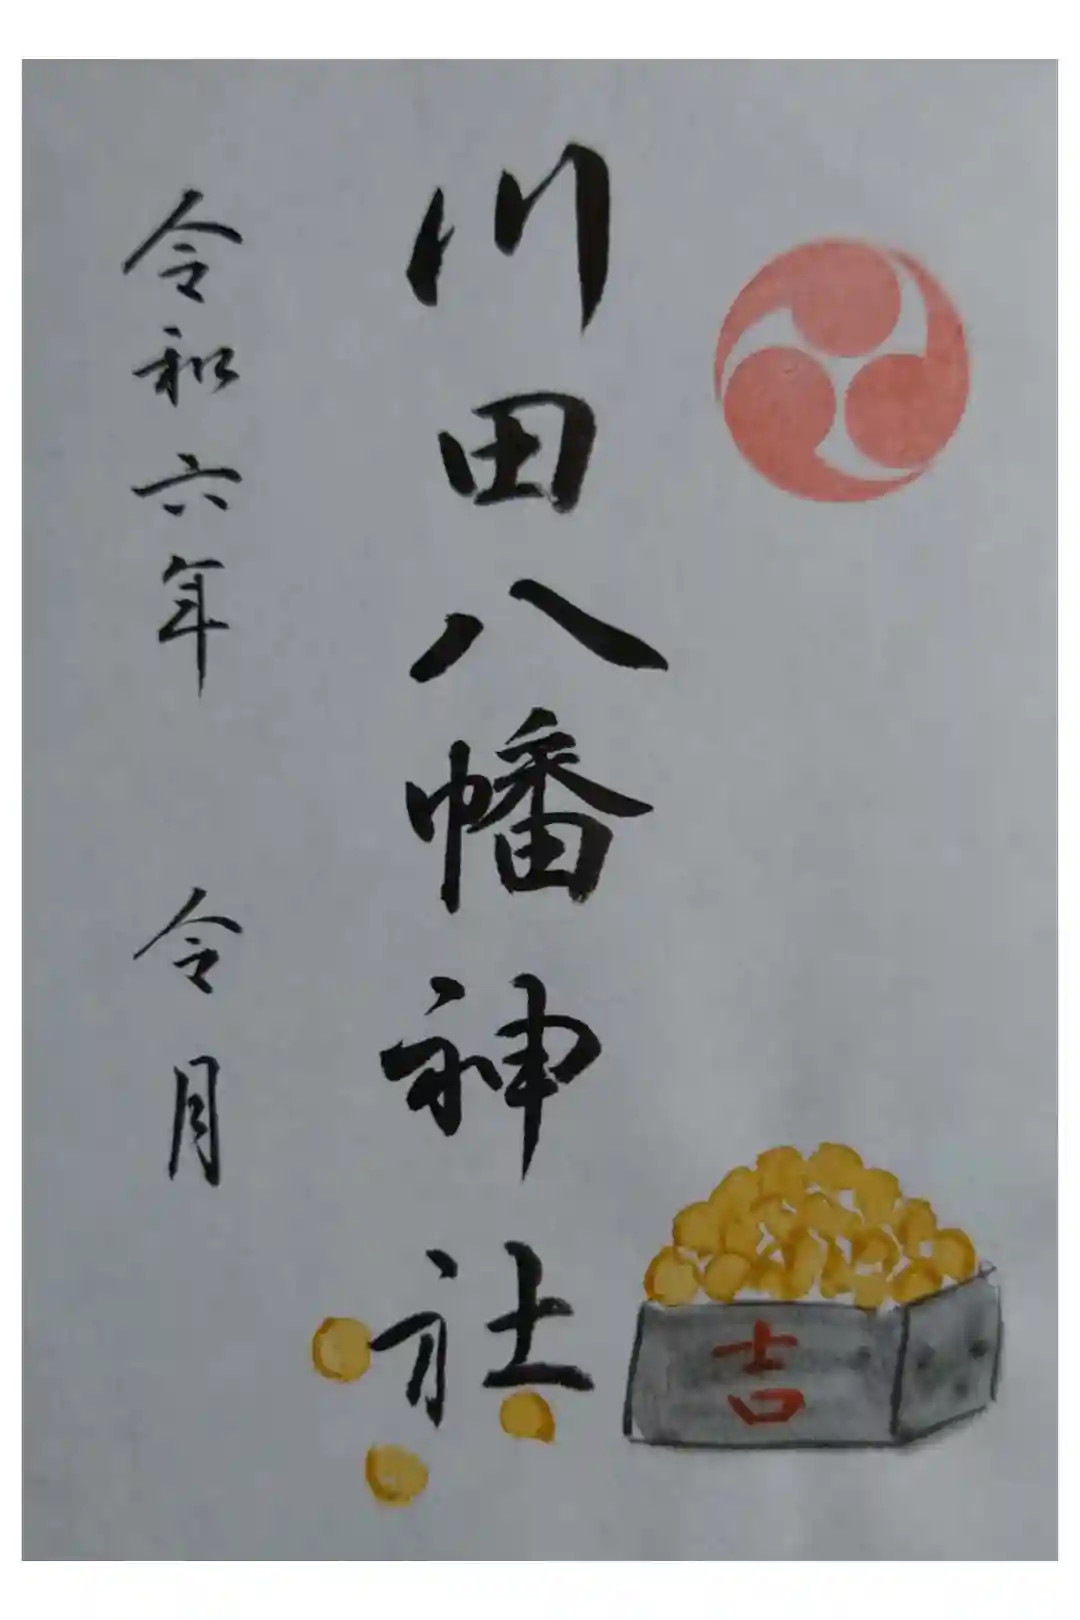 川田八幡神社
令和六年 令月
吉